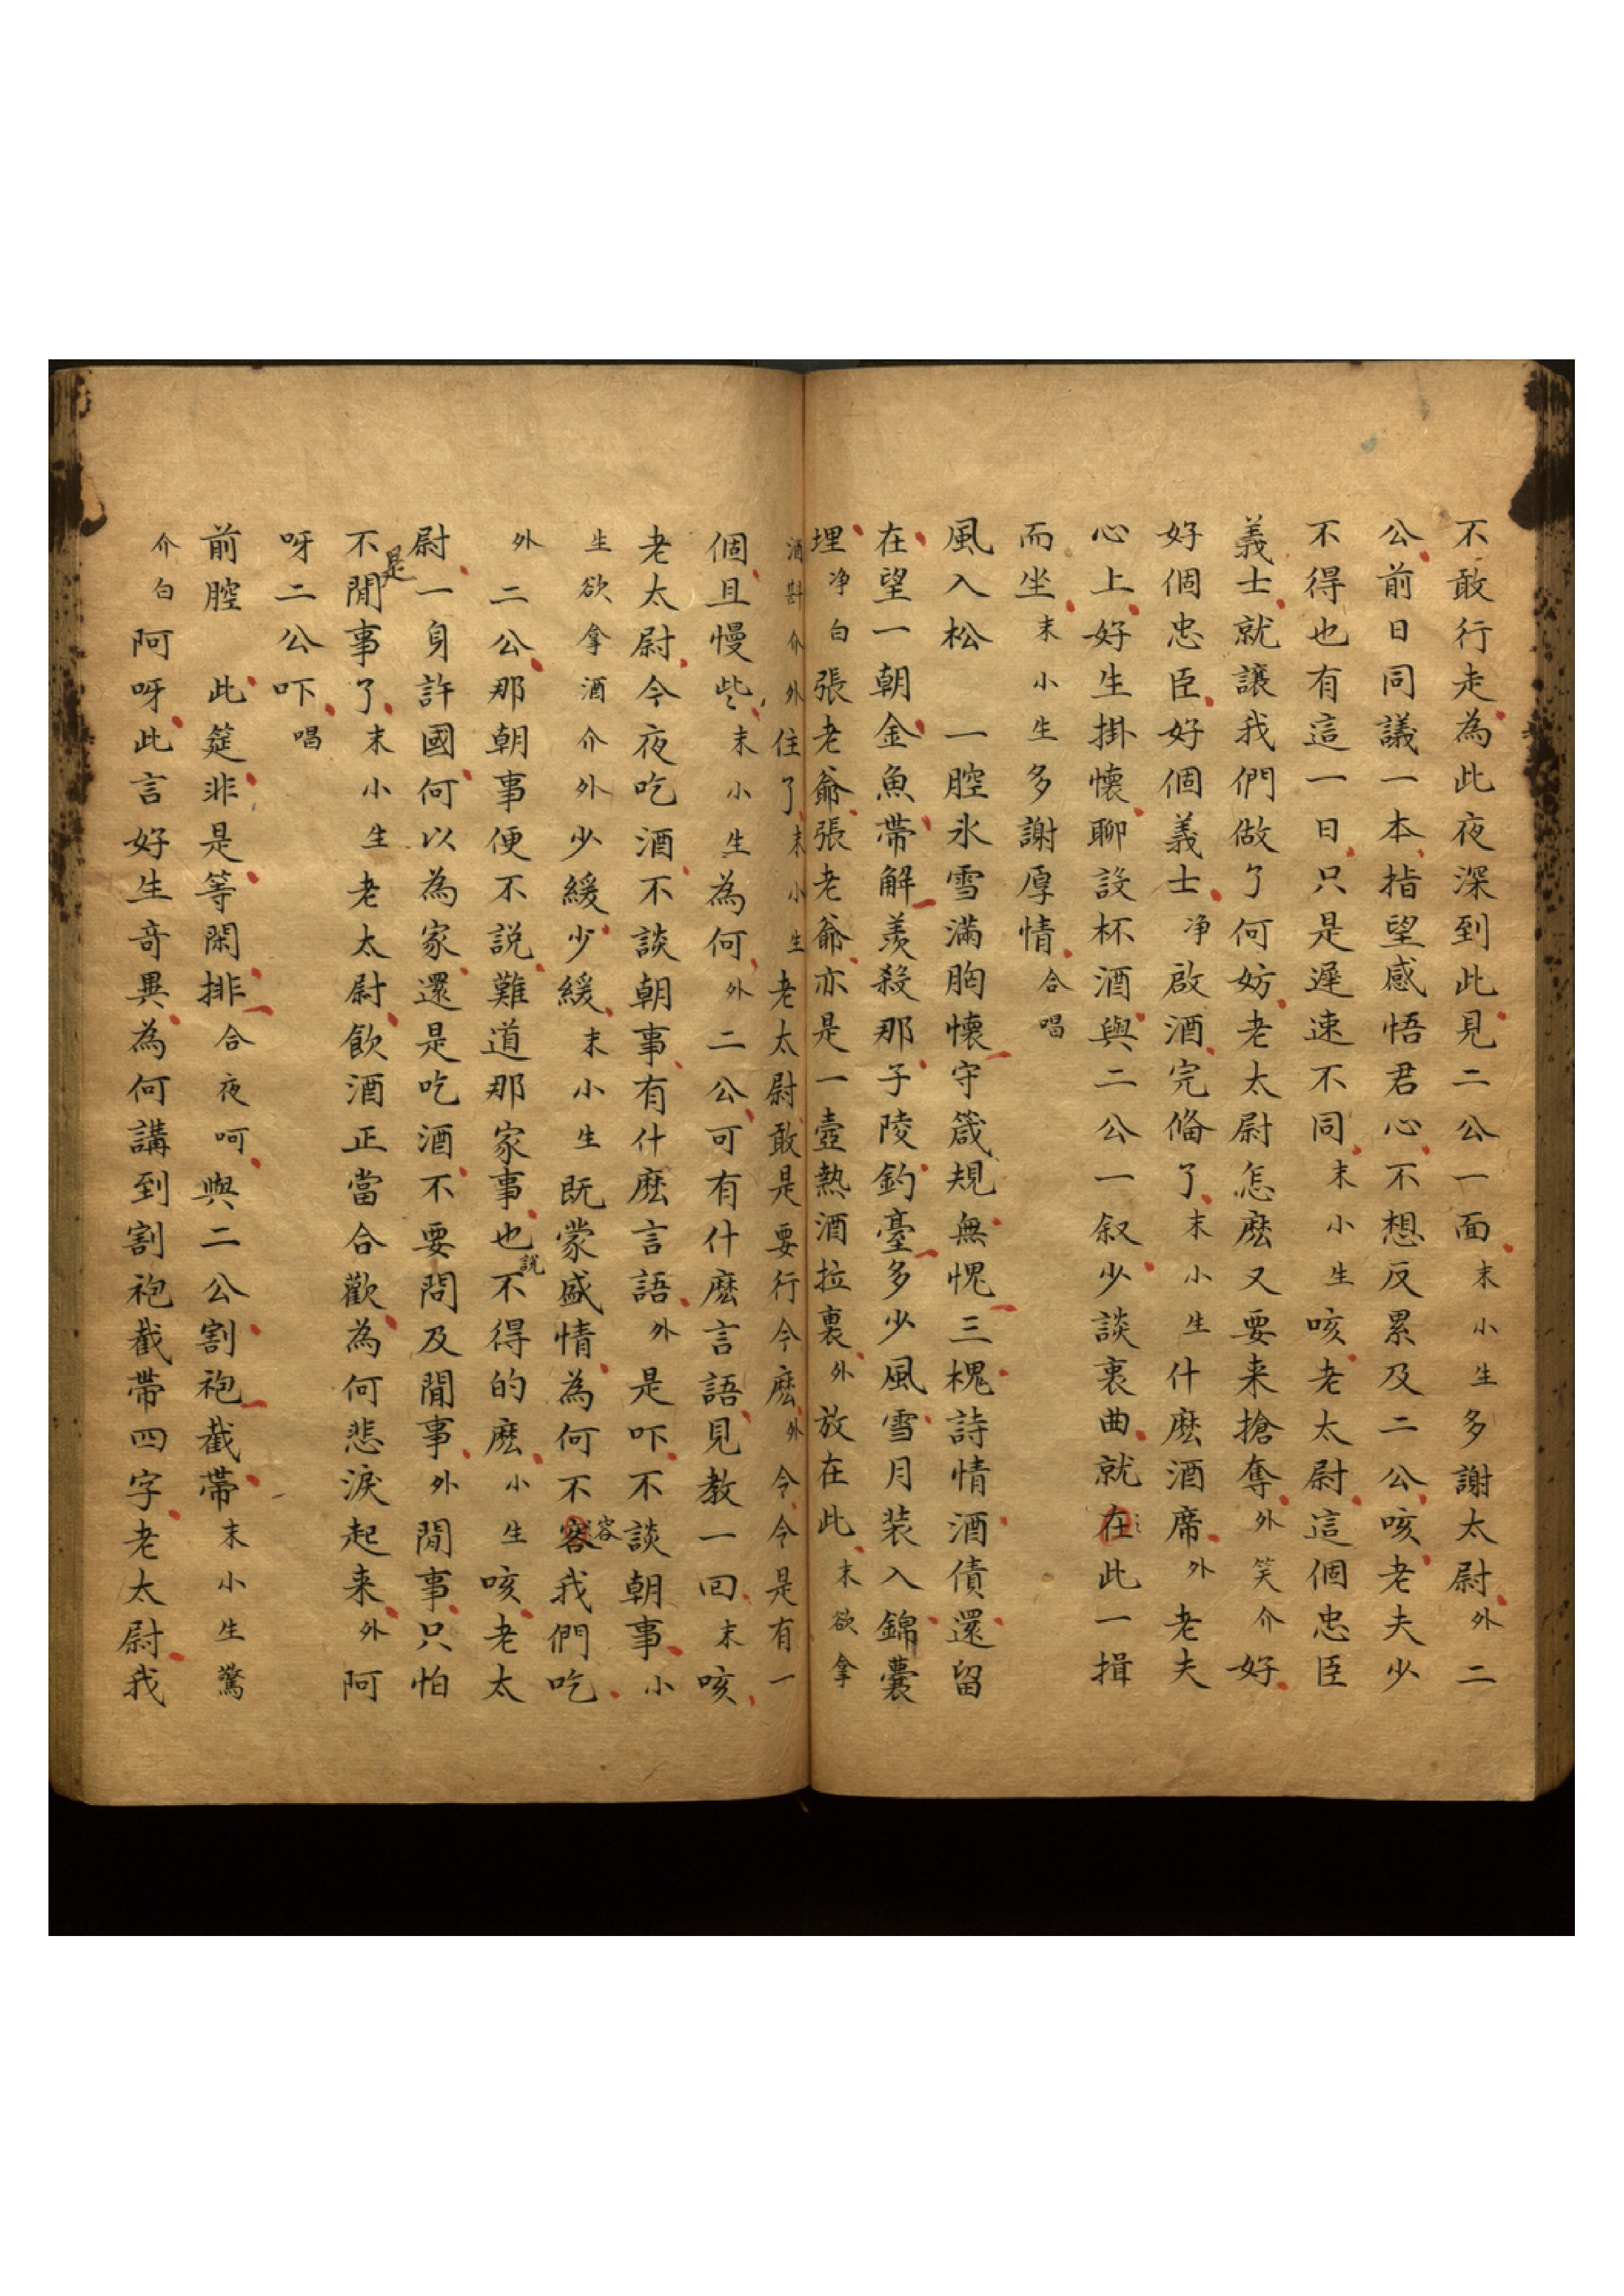 不敢行走為此夜深到此見二公一面末小生多謝太尉外二
公前日同議一本指望感悟君心不想反累及二公咳老夫少
不得也有這一日只是遲速不同末小生咳老太尉這個忠臣
義士就讓我們做了何妨老太尉怎麽又要来搶奪外笑介好
好個忠臣好個義士净啟酒完俻了末小生什麽酒席外老夫
心上好生掛懷聊設杯酒與二公一叙少談衷曲就在此一揖
而坐末小生多謝厚情合唱
風入松　一腔氷雪滿胸懷守箴規無愧三槐詩情酒債還留
在望一朝金魚帶解羨殺那子陵釣臺多少風雪月装入錦囊
埋净白張老爺張老爺亦是一壺熱酒拉裏外放在此末欲拿
酒斟介外住了末小生老太尉敢是要行令麽外令令是有一
個且慢些末小生為何外二公可有什麽言語見教一回末咳
老太尉今夜吃酒不談朝事有什麽言語外是吓不談朝事小
生欲拿酒介外少緩少緩末小生既蒙盛情為何不容容我們吃
外二公那朝事便不説難道那家事也説不得的麽小生咳老太
尉一身許國何以為家還是吃酒不要問及閒事外閒事只怕
不是閒事了末小生老太尉飲酒正當合歡為何悲淚起来外阿
呀二公吓唱
前腔　此筵非是等閑排合夜呵與二公割袍截帶末小生驚
介白阿呀此言好生竒異為何講到割袍截帶四字老太尉我